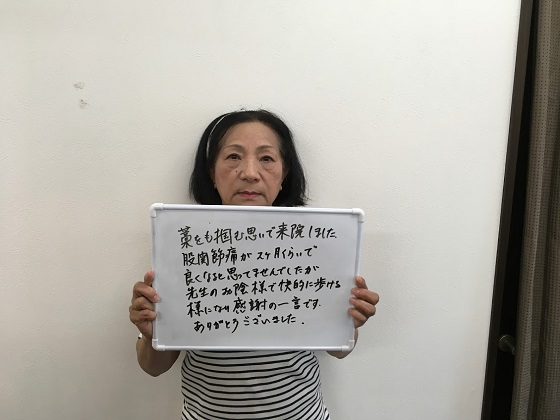 藁をも掴む思いで来院しました
股関節痛が2ヶ月くらいで
良くなると思ってませんでしたが
先生のお陰様で快的に歩ける
様になり感謝の一言です.
ありがとうございました.